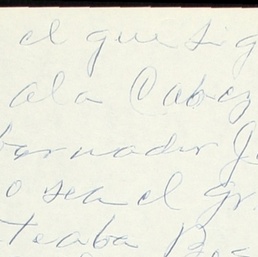 el que sig
ala Cabez
bernador J
o sea el gr
teaba Bes